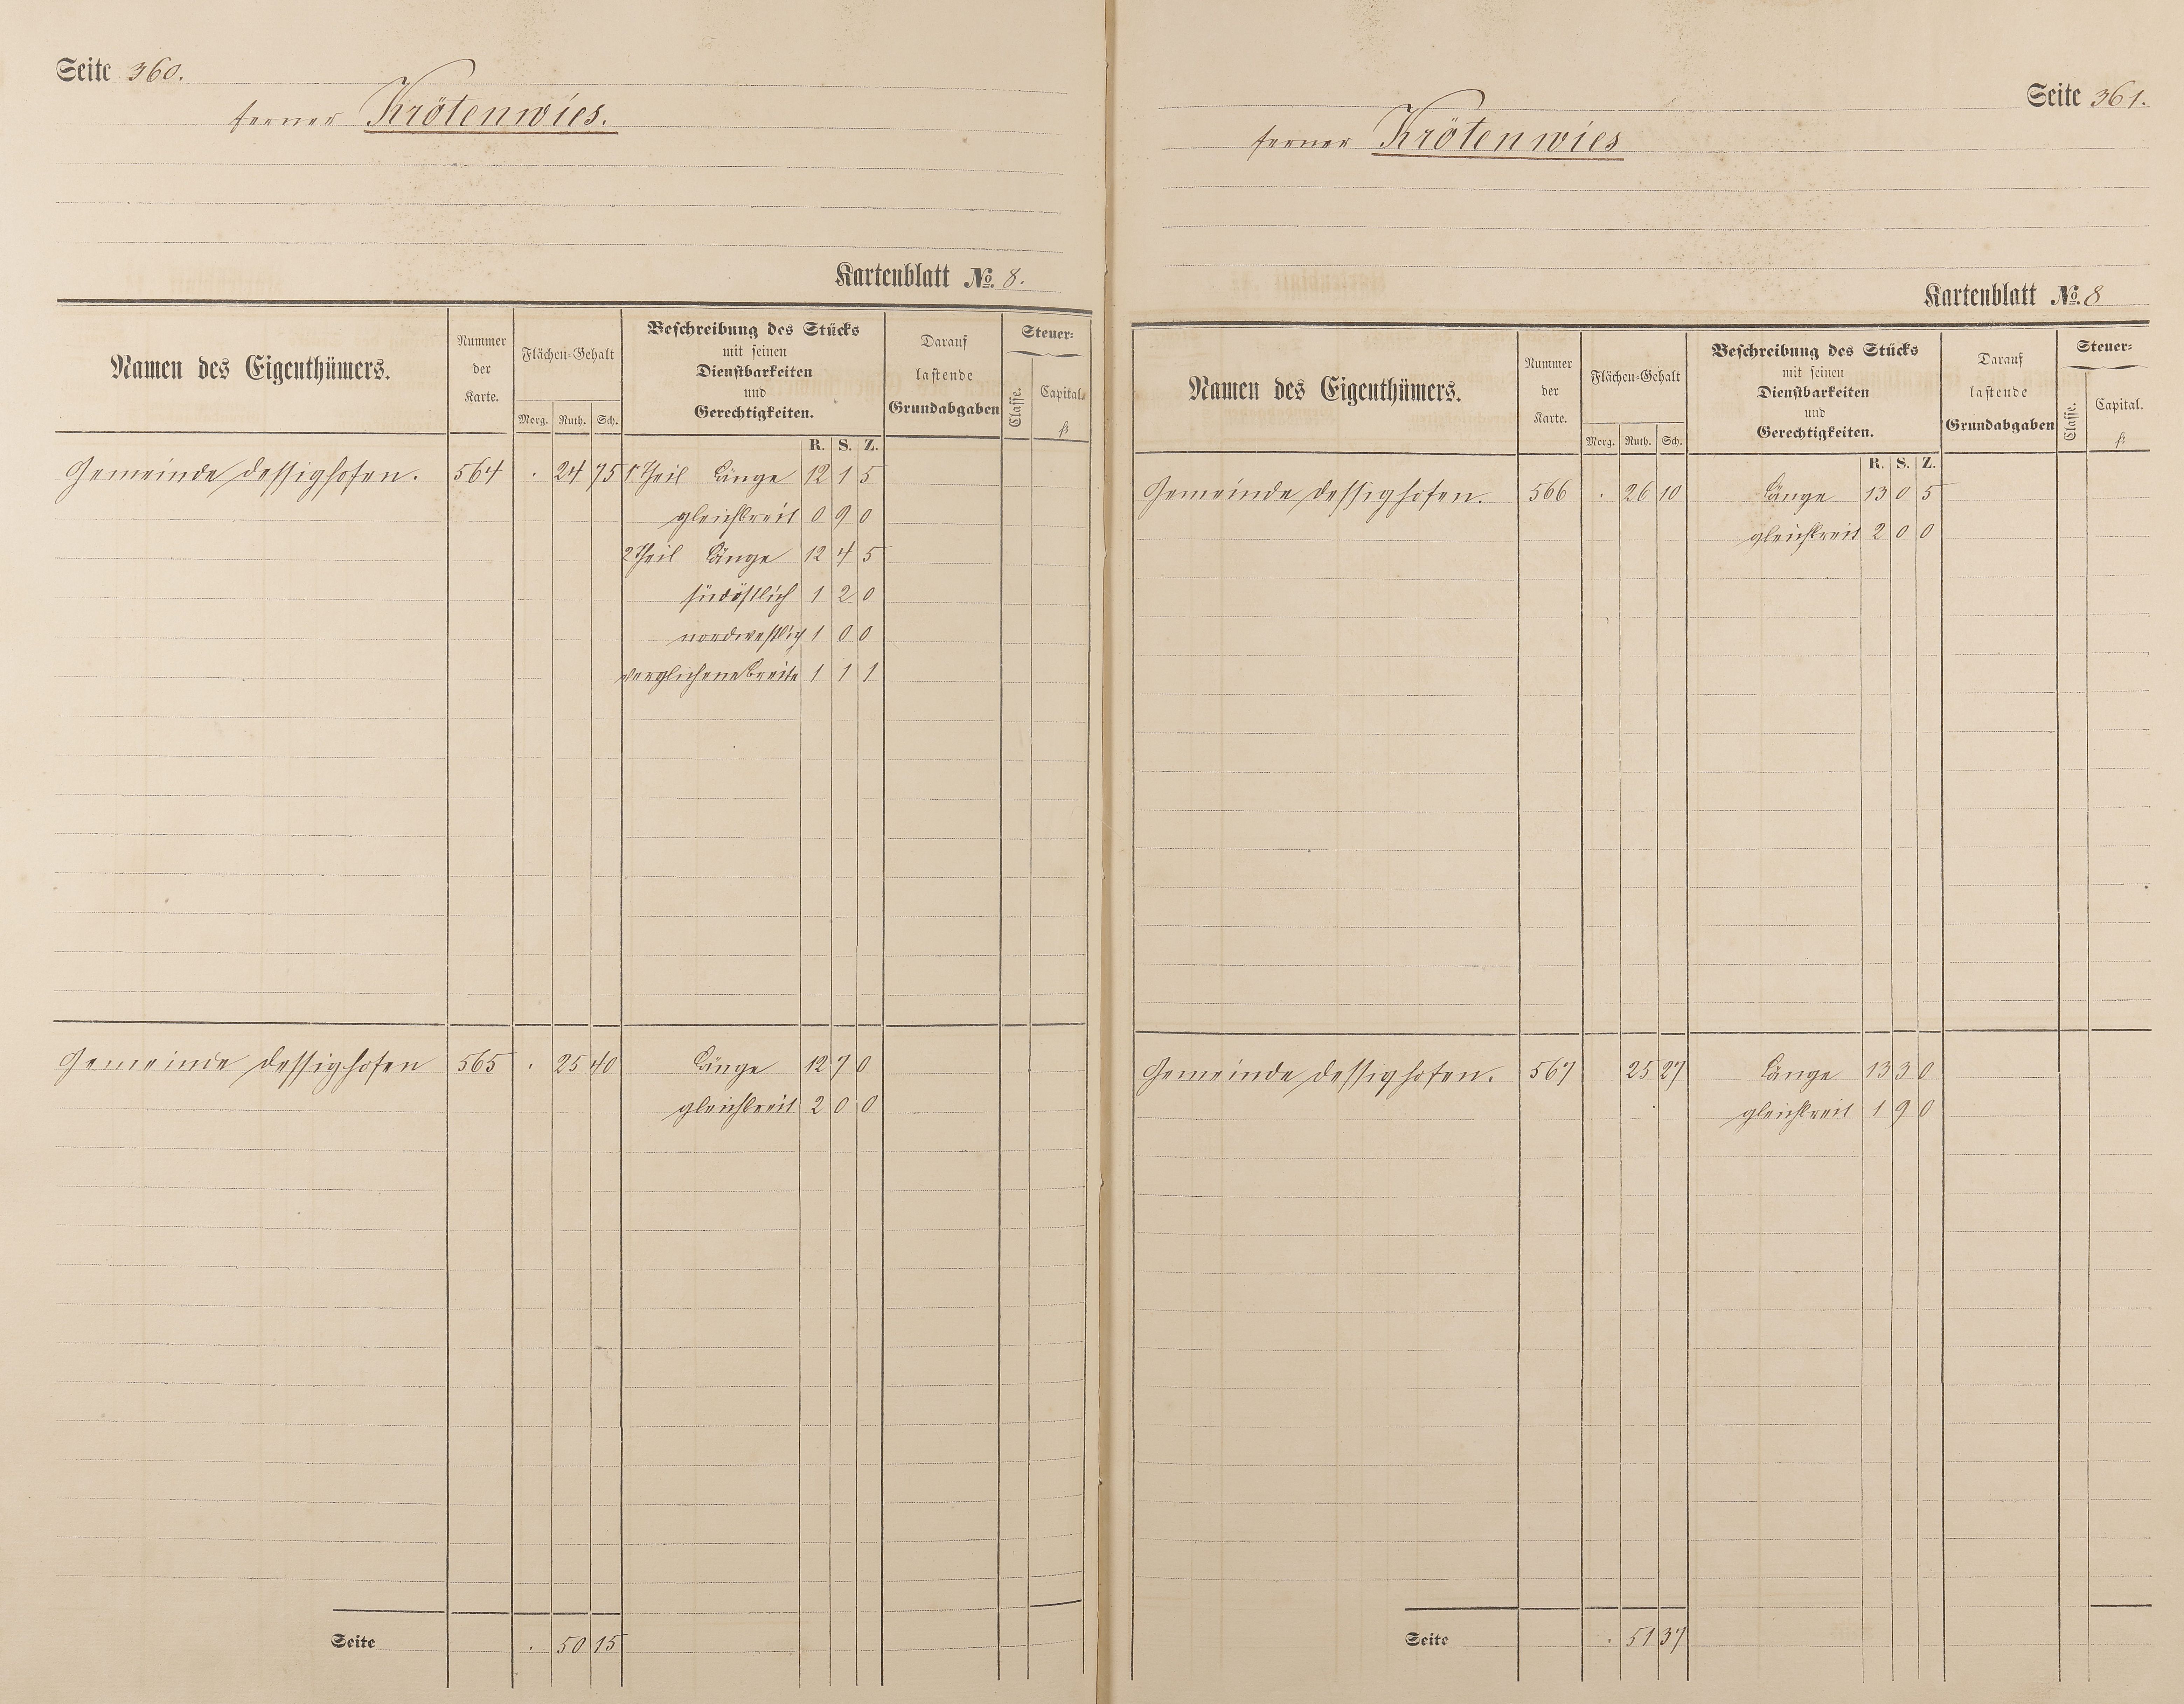 Seite 360.
ferner Krötenwies.
Kartenblatt No. 8.
Namen des Eigenthümers.
Nummer
der
Karte.
Flächen-Gehalt
Morg. Ruth. Sch.
Beschreibung des Stücks
mit seinen
Dienstbarkeiten
und
Gerechtigkeiten.
R. S. Z.
Darauf
lastende
Grundabgaben
Steuer-
Classe.
Capital.
fl
Gemeinde Dessighofen. 564 . 24 75 1 Theil Länge 12 1 5
gleichbreit 0 9 0
2 Theil Länge 12 4 5
südöstlich 1 2 0
nordwestlich 1 0 0
verglichene Breite 1 1 1
Gemeinde Dessighofen 565 . 25 40 Länge 12 7 0
gleichbreit 2 0 0
Seite . 50 15
Seite 361.
ferner Krötenwies
Kartenblatt No. 8
Namen des Eigenthümers.
Nummer
der
Karte.
Flächen-Gehalt
Morg. Ruth. Sch.
Beschreibung des Stücks
mit seinen
Dienstbarkeiten
und
Gerechtigkeiten.
R. S. Z.
Darauf
lastende
Grundabgaben
Steuer-
Classe.
Capital.
fl
Gemeinde Dessighofen. 566 . 26 10 Länge 13 0 5
gleichbreit 2 0 0
Gemeinde Dessighofen. 567 25 27 Länge 13 3 0
gleichbreit 1 9 0
Seite . 51 37